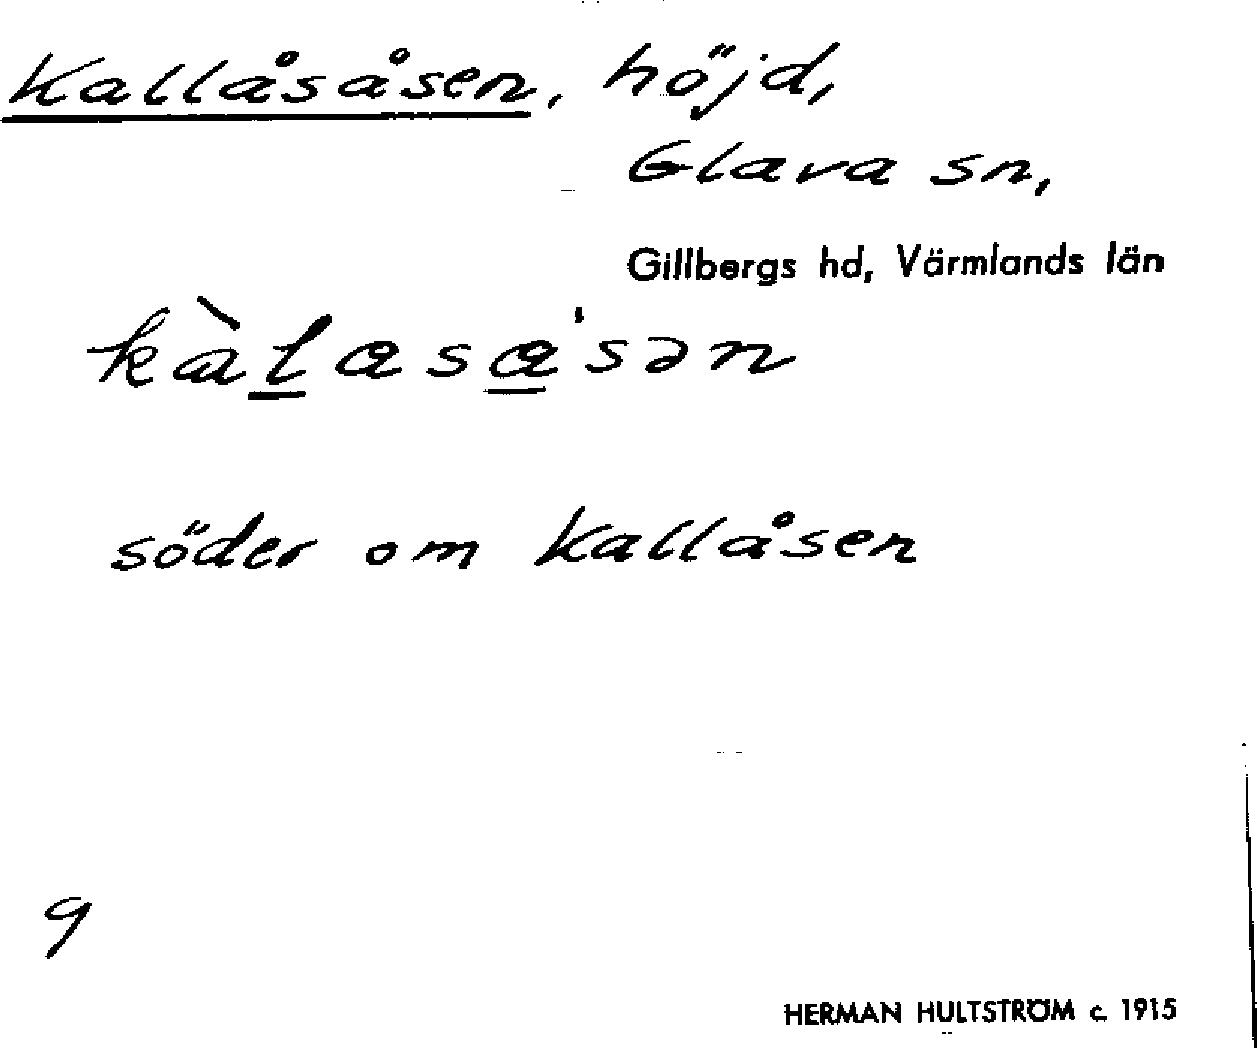 Kallåsåsen, höjd,
Glava sn,
Gillbergs hd, Värmlands län
kàl̲asa̲'sən
söder om Kallåsen
9
HERMAN HULTSTRÖM c. 1915